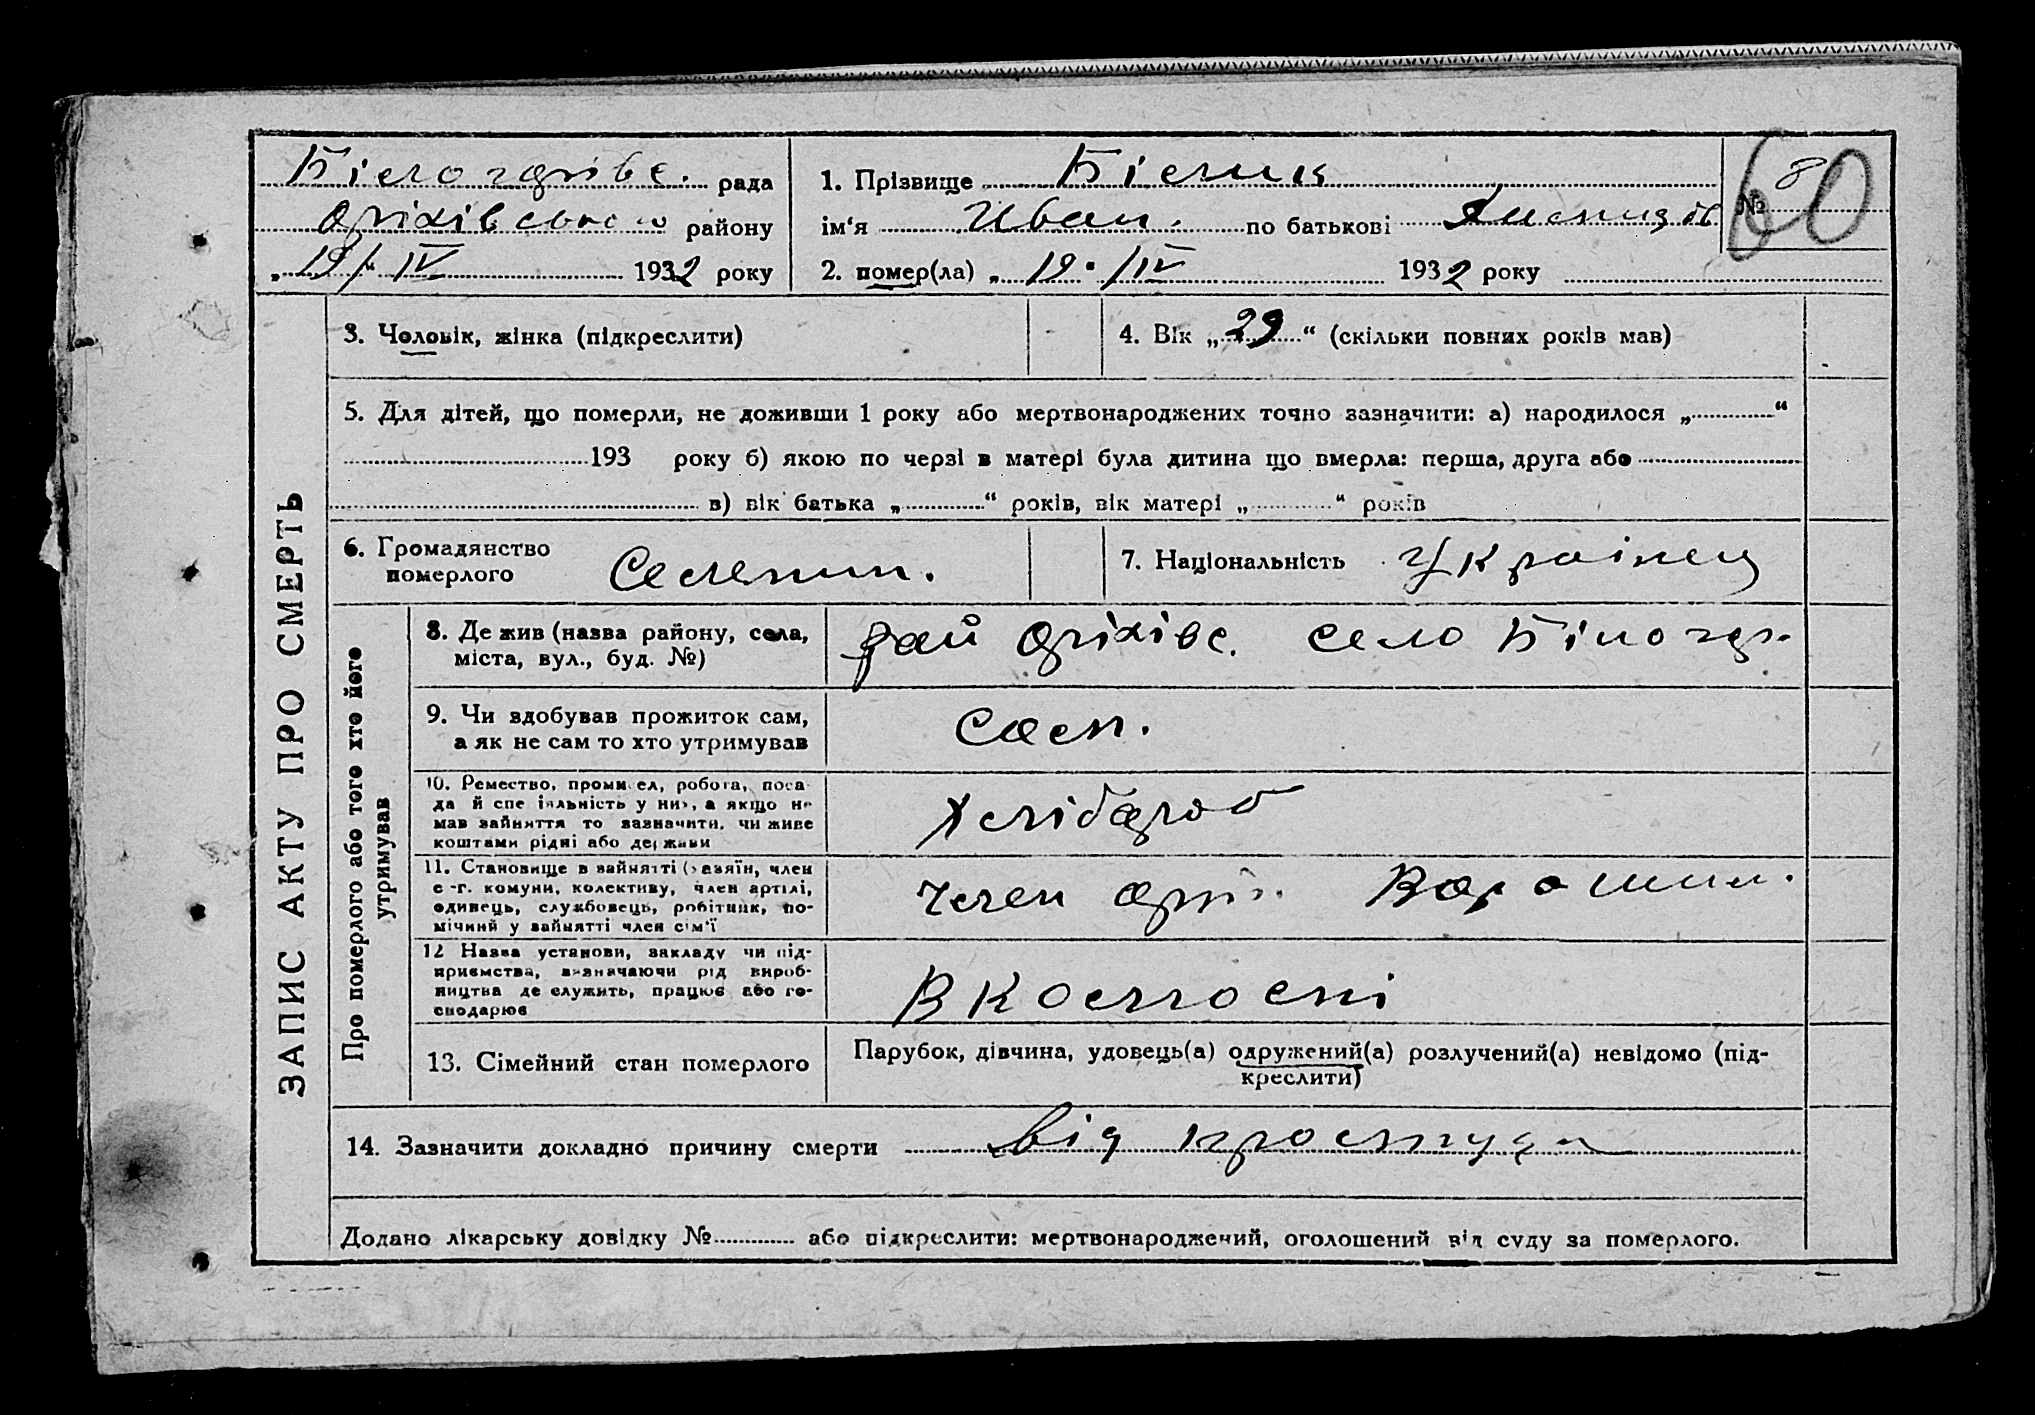 Білогорівс. рада
Оріхівсько району
„19/“ IV 1932 року
1. Прізвище Білик
ім'я Иван. по батькові
2. помер(ла) „19. /IV 1932 року
№ 8
60
ЗАПИС АКТУ ПРО СМЕРТЬ
3. Чоловік, жінка (підкреслити)
4. Вік „29“ (скільки повних років мав)
5. Для дітей, що померли, не доживши 1 року або мертвонароджених точно зазначити: а) народилося „ “
193 року б) якою по черзі в матері була дитина що вмерла: перша, друга або
в) вік батька „ “ років, вік матері „ “ років
6. Громадянство
померлого Селянин.
7. Національність Українец
Про померлого або того хто його
утримував
8. Де жив (назва району, села,
міста, вул., буд. №)
рай Оріхівс. село Білогор.
9. Чи здобував прожиток сам,
а як не сам то хто утримував
Сам.
10. Ремество, промисел, робота, поса-
да й спеціяльність у них, а якщо не
мав зайняття то зазначити, чи живе
коштами рідні або держави
Хлібароб
11. Становище в зайнятті (хазяїн, член
с.-г. комуни, колективу, член артілі,
одивець, службовець, робітник, по-
мічний у зайнятті член сім'ї
Член арт. Ворошил.
12 Назва установи, закладу чи під-
приємства, визначаючи рід вироб-
ництва де служить, працює або го-
сподарює
В колгоспі
13. Сімейний стан померлого
Парубок, дівчина, удовець(а) одружений(а) розлучений(а) невідомо (під-
креслити)
14. Зазначити докладно причину смерти від простуди
Додано лікарську довідку № або підкреслити: мертвонароджений, оголошений від суду за померлого.